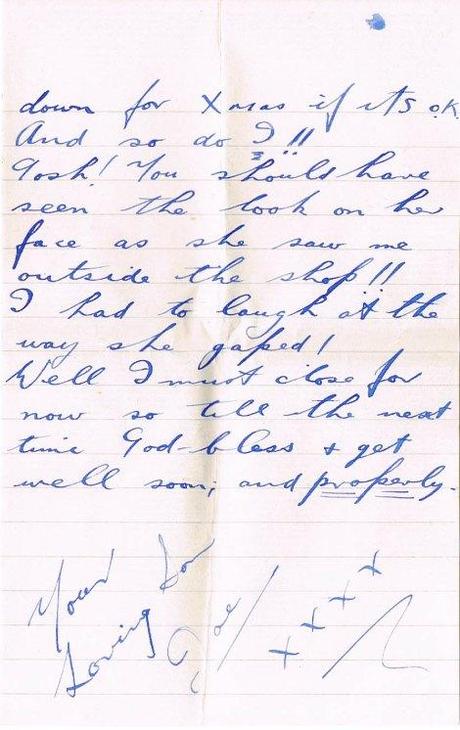 down for Xmas if its o.k.
And so do I!!
Gosh! You should have
seen the look on her
face as she saw me
outside the shop!!
I had to laugh at the
way she gaped!
Well I must close for
now so till the next
time God-bless + get
well soon; and properly.
Your
Loving Son
Joe
x x x x